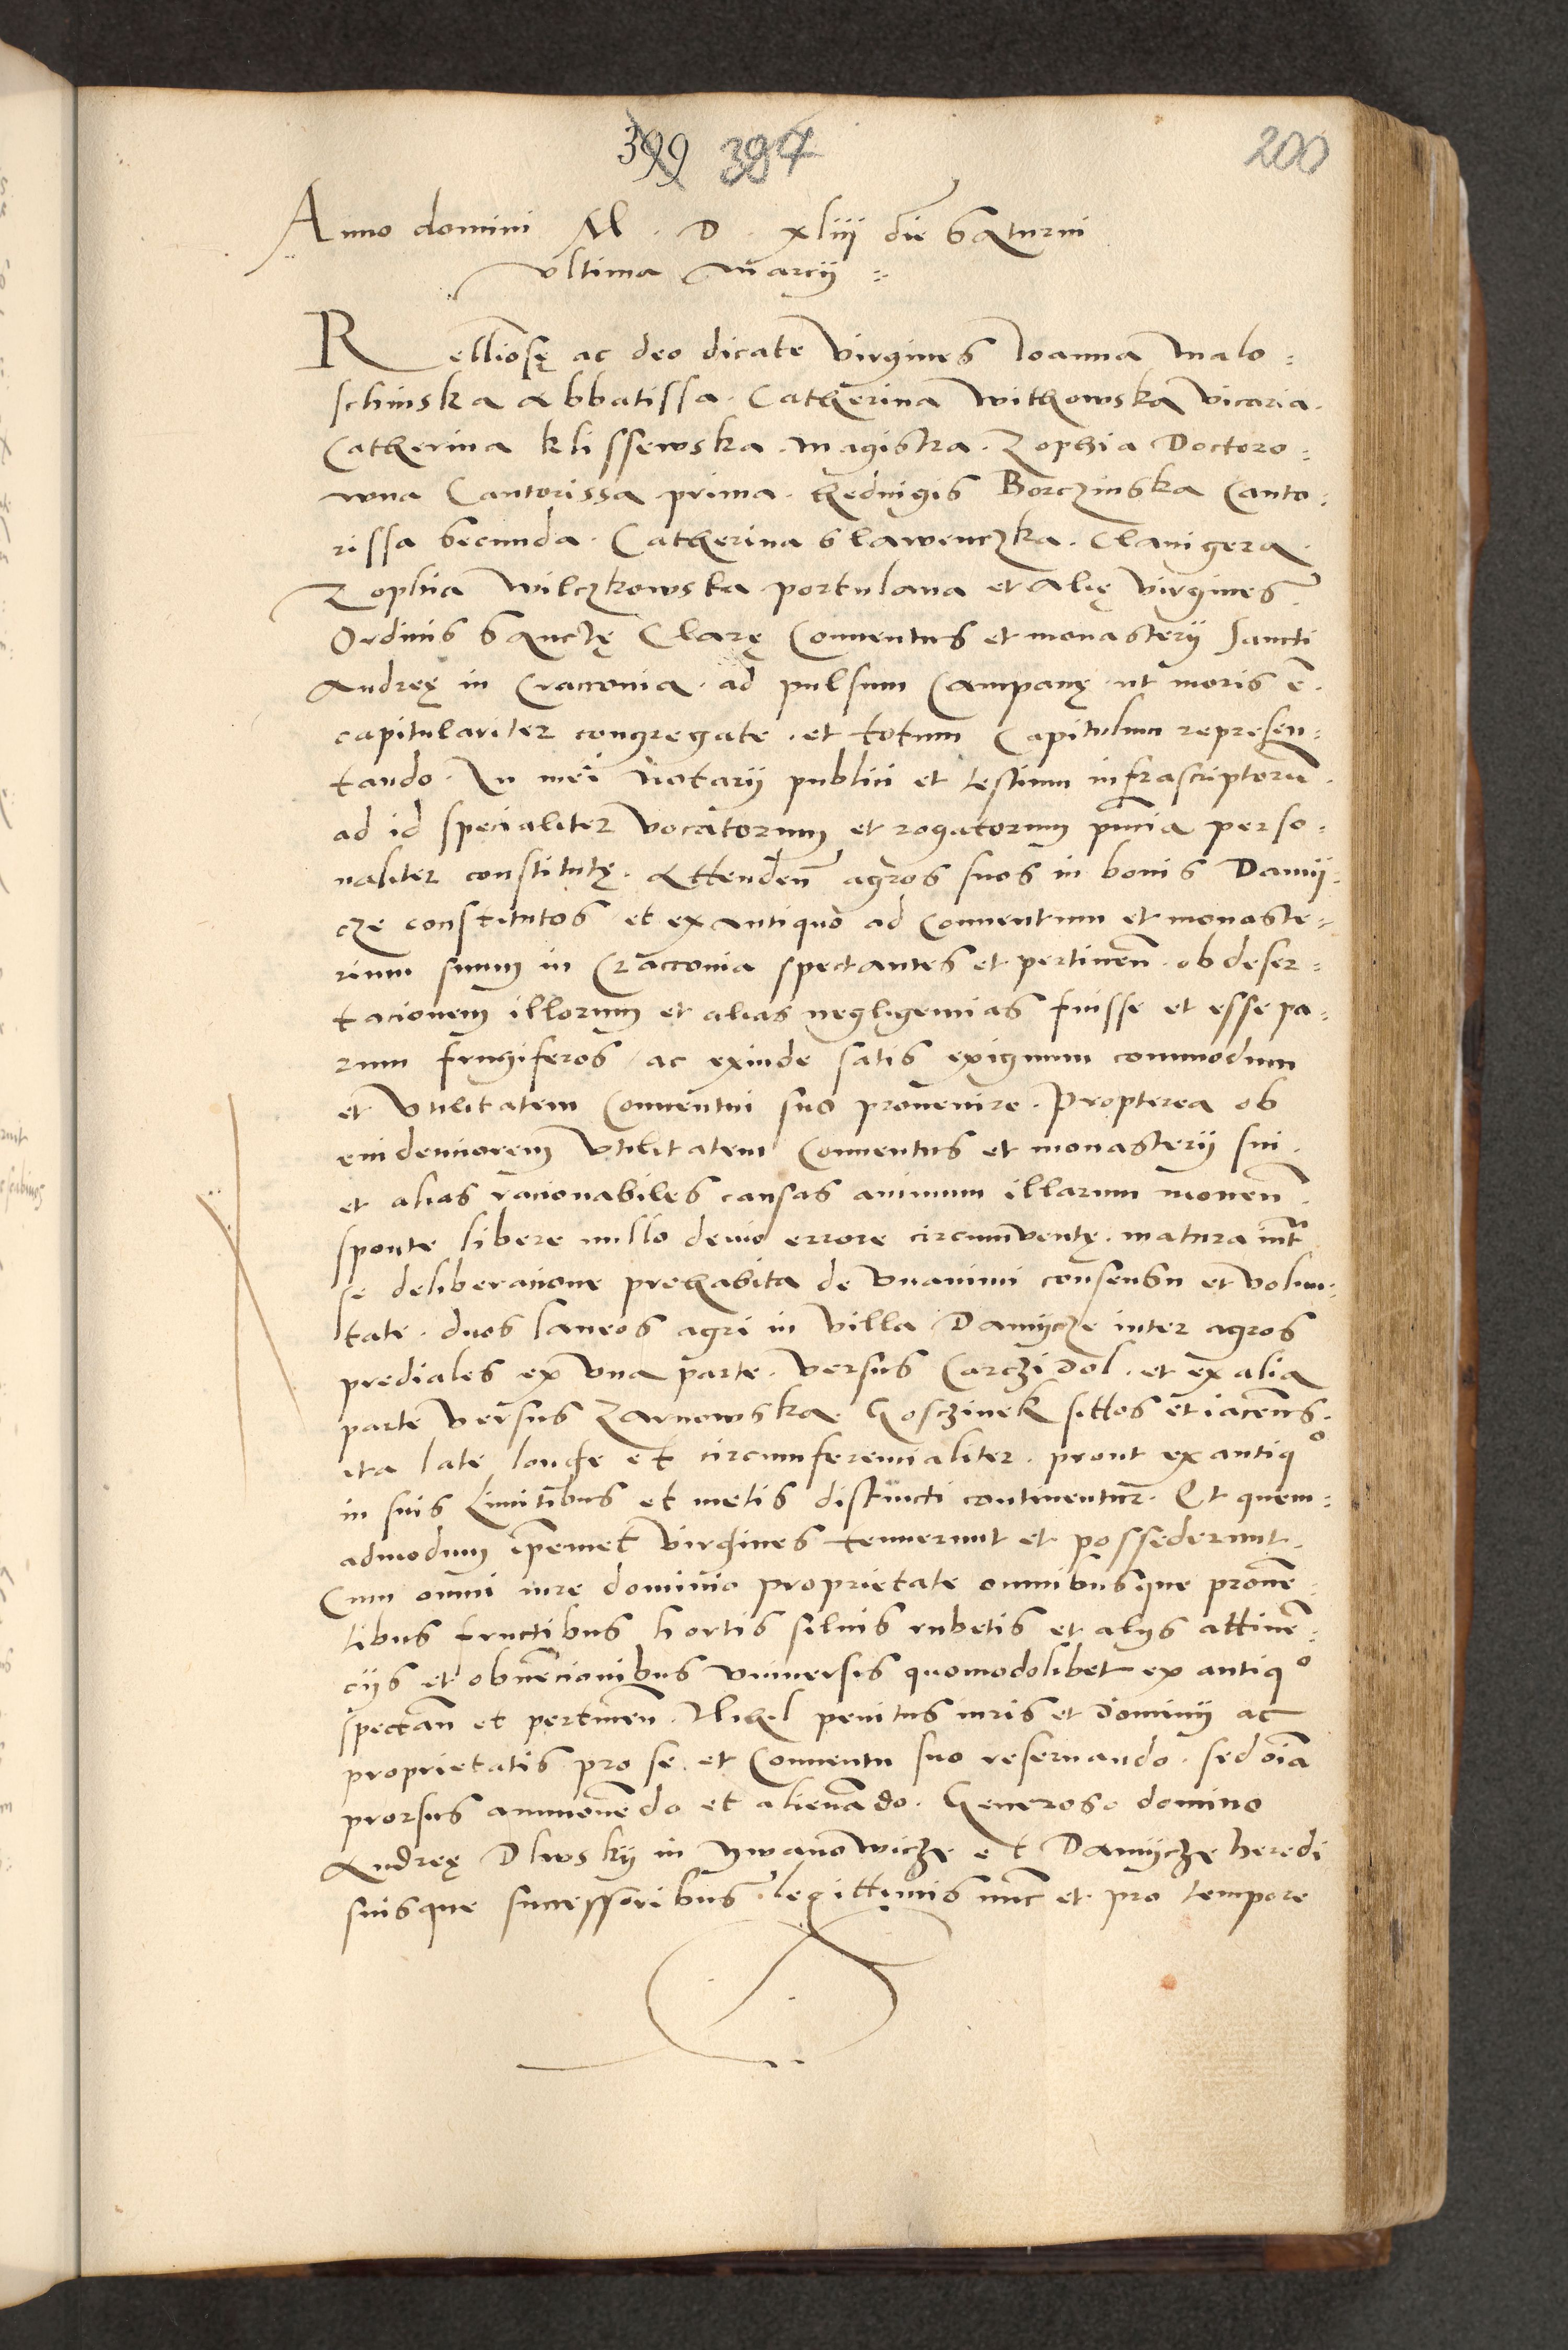 399 394 200
Anno domini M . D . xliij die Saturni
vltima marcij
Relliosę ac deo dicate virgines Ioanna Malo:
schinska Abbatissa . Catherina Withowska vicaria .
Catherina Klissewska . magistra . Zophia Doctoro:
wna Cantorissa prima . Heduigis Borczinska Canto:
rissa Secunda . Catherina Slawenczka . Clauigera .
Zophia Wilczkowska portulana et alię virgines
Ordinis Sanctę Clarę Conuentus et monasterij Sancti
Andreę in Cracouia . ad pulsum Campanę ut moris ē .
capitulariter congregate . et totum Capitulum represen:
tando . In mei Notarij publici et testium infrascriptorū .
ad id specialiter vocatorum et rogatorum pn̄cia perso:
naliter constitutę . Attenden̄ agros suos in bonis Damij:
cze constitutos et ex antiquo ad Conuentum et monaste:
rium suum in Cracouia spectantes et pertinen̄ . ob deser:
tacionem illorum et alias negligencias fuisse et esse pa:
rum frugiferos / ac exinde satis exiguum commodum
et vtilitatem Conuentui suo prouenire . Propterea ob
euidenciorem vtilitatem Conuentus et monasterij sui .
et alias racionabiles causas animum illarum mouen̄ .
sponte libere nullo deuio errore circumventę . matura int̄
se deliberacione prehabita de vnanimi consensu et volun:
tate . duos laneos agri in villa Damijcze inter agros
prediales ex vna parte . versus Carczidol . et ex alia
parte versus Zarnowska Gosczinek sittos et iacen̄s .
ita late longe et circumferencialiter . prout ex antiqo
in suis Limitibus et metis distincti continentur . Et quem:
admodum ip̄emet virgines tenuerunt et possederunt .
Cum omni iure dominio proprietate omnibusque prouē:
tibus fructibus hortis siluis rubetis et alijs attinē:
cijs et obuēcionibus vniuersis quomodolibet ex antiqo
spectan̄ et pertinen̄ . Nihil penitus iuris et dominij ac
proprietatis pro se et Conuentu suo reseruando . sed oīa
prorsus ammouēdo et alienādo . Generoso domino
Andreę Dlwsky in Ywanowicze et Damijcze heredi
suisque successoribus legittimis nunc et pro tempore